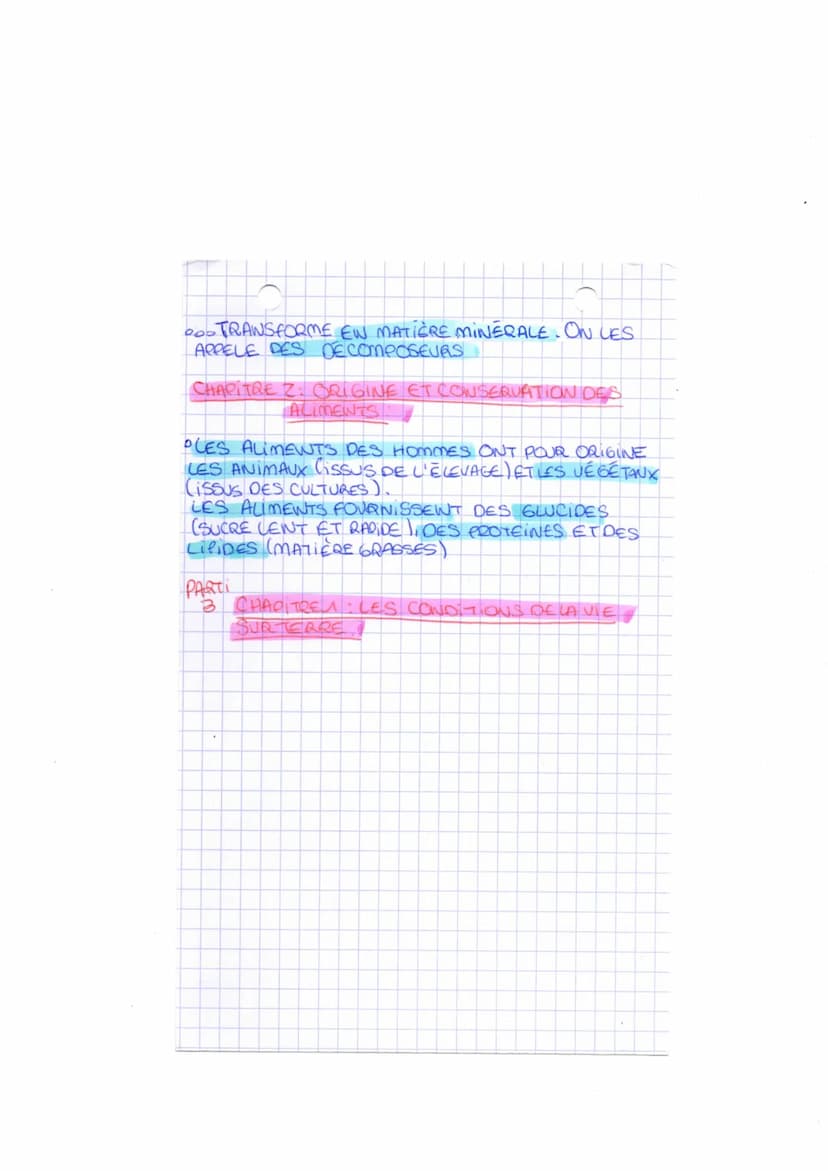 ... TRANSFORME EN MATIÈRE MINÉRALE. ON LES
APPELE DES DÉCOMPOSEURS
CHAPITRE 2: ORIGINE ET CONSERVATION DES
ALIMENTS
° LES ALIMENTS DES HOMMES ONT POUR ORIGINE
LES ANIMAUX (ISSUS DE L'ÉLEVAGE) ET LES VÉGÉTAUX
(ISSUS DES CULTURES).
LES ALIMENTS FOURNISSENT DES GLUCIDES
(SUCRE LENT ET RAPIDE), DES PROTEINES ET DES
LIPIDES (MATIÈRE GRASSES)
PARTI
3 CHAPITRE 1 : LES CONDITIONS DE LA VIE
SUR TERRE.